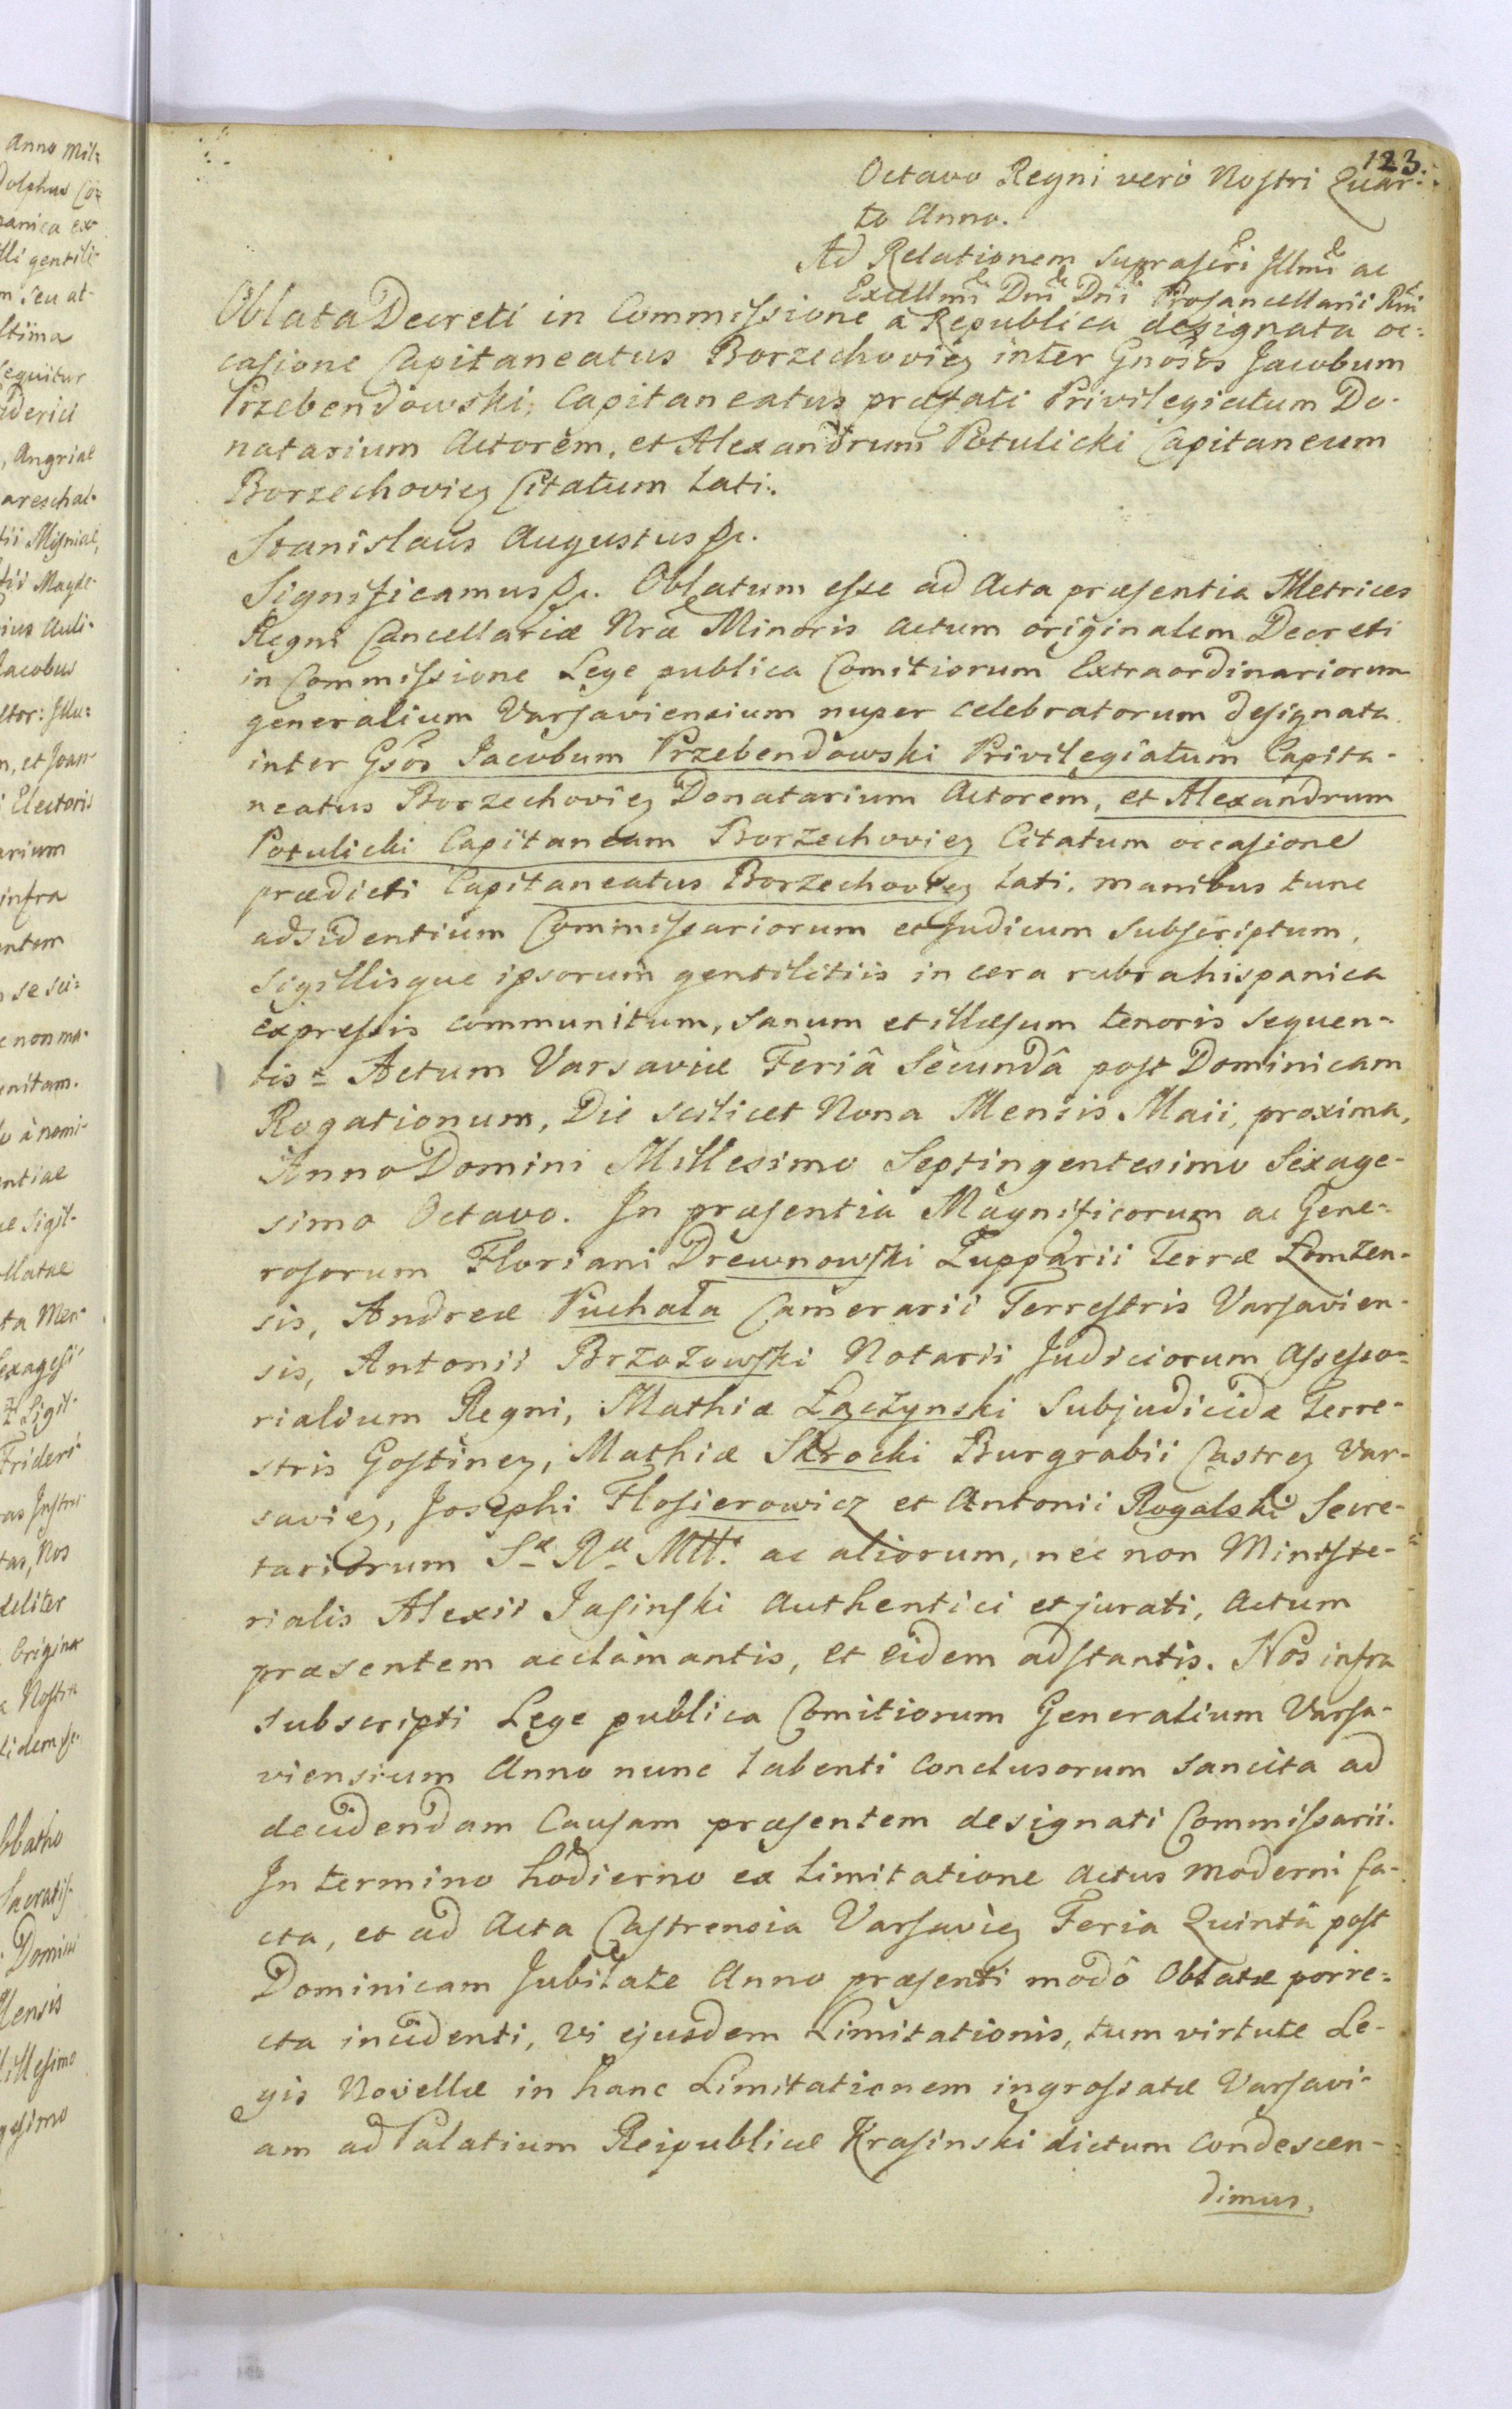 123.
Octavo Regni verò Nostri Quar-
to Anno.
Ad Relationem suprascri Illmi ac
Excellmi Dni Dni Procancellarii Rni
Oblata Decreti in Commissione à Republica designata oc-
casione Capitaneatus Borzechovien inter Gnosos Jacobum
Przebendowski, Capitaneatus præfati Privilegiatum Do-
natarium Actorem, et Alexandrum Potulicki Capitaneum
Borzechovien Citatum lati.
Stanislaus Augustus &c.
Significamus &c. Oblatum esse ad Acta præsentia Metrices
Regni Cancellariæ Nræ Minoris Actum originalem Decreti
in Commissione Lege publica Comitiorum Extraordinariorum
generalium Varsaviensium nuper celebratorum designata
inter Gsos Jacobum Przebendowski Privilegiatum Capita-
neatus Borzechovien Donatarium Actorem, et Alexandrum
Potulicki Capitaneum Borzechovien Citatum occasione
prædicti Capitaneatus Borzechovien lati, manibus tunc
adsidentium Commissariorum et Judicum subscriptum,
sigillisque ipsorum gentilitiis in cera rubra hispanica
expressis communitum, sanum et illæsum tenoris sequen-
tis: Actum Varsaviæ Feriâ Secundâ post Dominicam
Rogationum, Die scilicet Nona Mensis Maii, proxima,
Anno Domini Millesimo Septingentesimo Sexage-
simo Octavo. In præsentia Magnificorum ac Gene-
rosorum Floriani Drewnowski Lupparii Terræ Lomzen-
sis, Andreæ Puchała Camerarii Terrestris Varsavien-
sis, Antonii Brzozowski Notarii Judiciorum Assesso-
rialium Regni, Mathiæ Łączynski Subjudicidæ Terre-
stris Gostinen, Mathiæ Skrocki Burgrabii Castren Var-
savien, Josephi Flosierowicz et Antonii Rogalski Secre-
tariorum Sæ Ræ Mtt. ac aliorum, nec non Ministe-
rialis Alexii Jasinski Authentici et jurati, Actum
præsentem acclamantis, et eidem adstantis. Nos infra
subscripti Lege publica Comitiorum Generalium Varsa-
viensium Anno nunc labenti conclusorum sancita ad
decidendam Causam præsentem designati Commissarii.
In termino hodierno ex limitatione Actus moderni fa-
cta, et ad Acta Castrensia Varsavien Feria Quintâ post
Dominicam Jubilate Anno præsenti modô Oblatæ porre-
cta incidenti, vi ejusdem Limitationis, tum virtute Le-
gis Novellæ in hanc Limitationem ingrossatæ Varsavi-
am ad Palatium Reipublicæ Krasinski dictum condescen-
dimus,